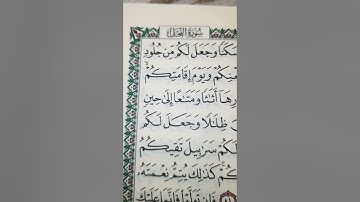 سُورَةُ النَّحْلِ
سَكَنًا وَجَعَلَ لَكُم مِّن جُلُودِ
ظَعْنِكُمْ وَيَوْمَ إِقَامَتِكُمْ
أَثَٰثًا وَمَتَٰعًا إِلَىٰ حِينٍ
ظِلَٰلًا وَجَعَلَ لَكُم
لَكُمْ سَرَٰبِيلَ تَقِيكُمُ
كَذَٰلِكَ يُتِمُّ نِعْمَتَهُۥ
فَإِن تَوَلَّوْا۟ فَإِنَّمَا عَلَيْكَ